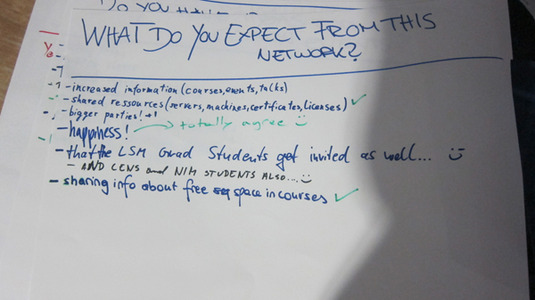 DO YOU HAVE
WHAT DO YOU EXPECT FROM THIS
NETWORK?
- increased information (courses, events, talks)
- shared ressources (servers, machines, certificates, licenses) ✓
- bigger parties! +1
- happiness! → totally agree :)
- that the LSM Grad Students get invited as well... :)
- AND CENS and NIM STUDENTS ALSO... :)
- sharing info about free space in courses ✓